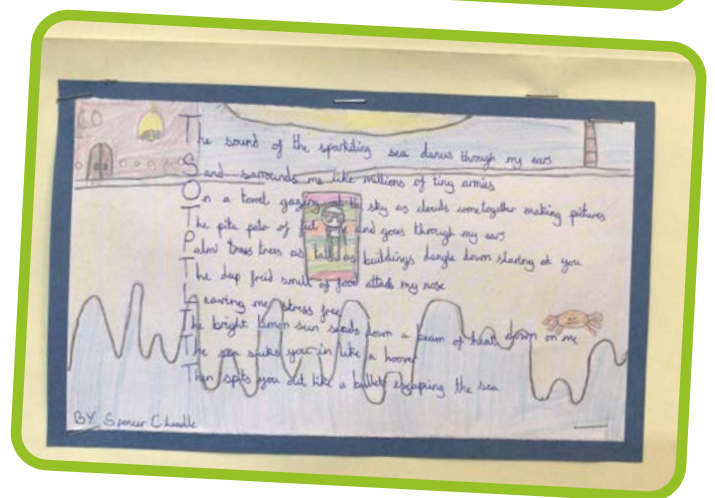 The sound of the sparkiling sea dances through my ears
Sand sarrounds me like millions of tiny armies
On a towel gazing at the sky as clouds come together making pitures
The pita pata of feet and goes through my ears
Palm trees trees as tall as buildings dangle down staring at you
The deep fried smell of food attack my nose
Leaving me stress free
The bright lemon sun sends down a beam of heat down on me
The sea sucks you in like a hoover
Then spits you out like a bullet escaping the sea
BY Spencer Cheadle